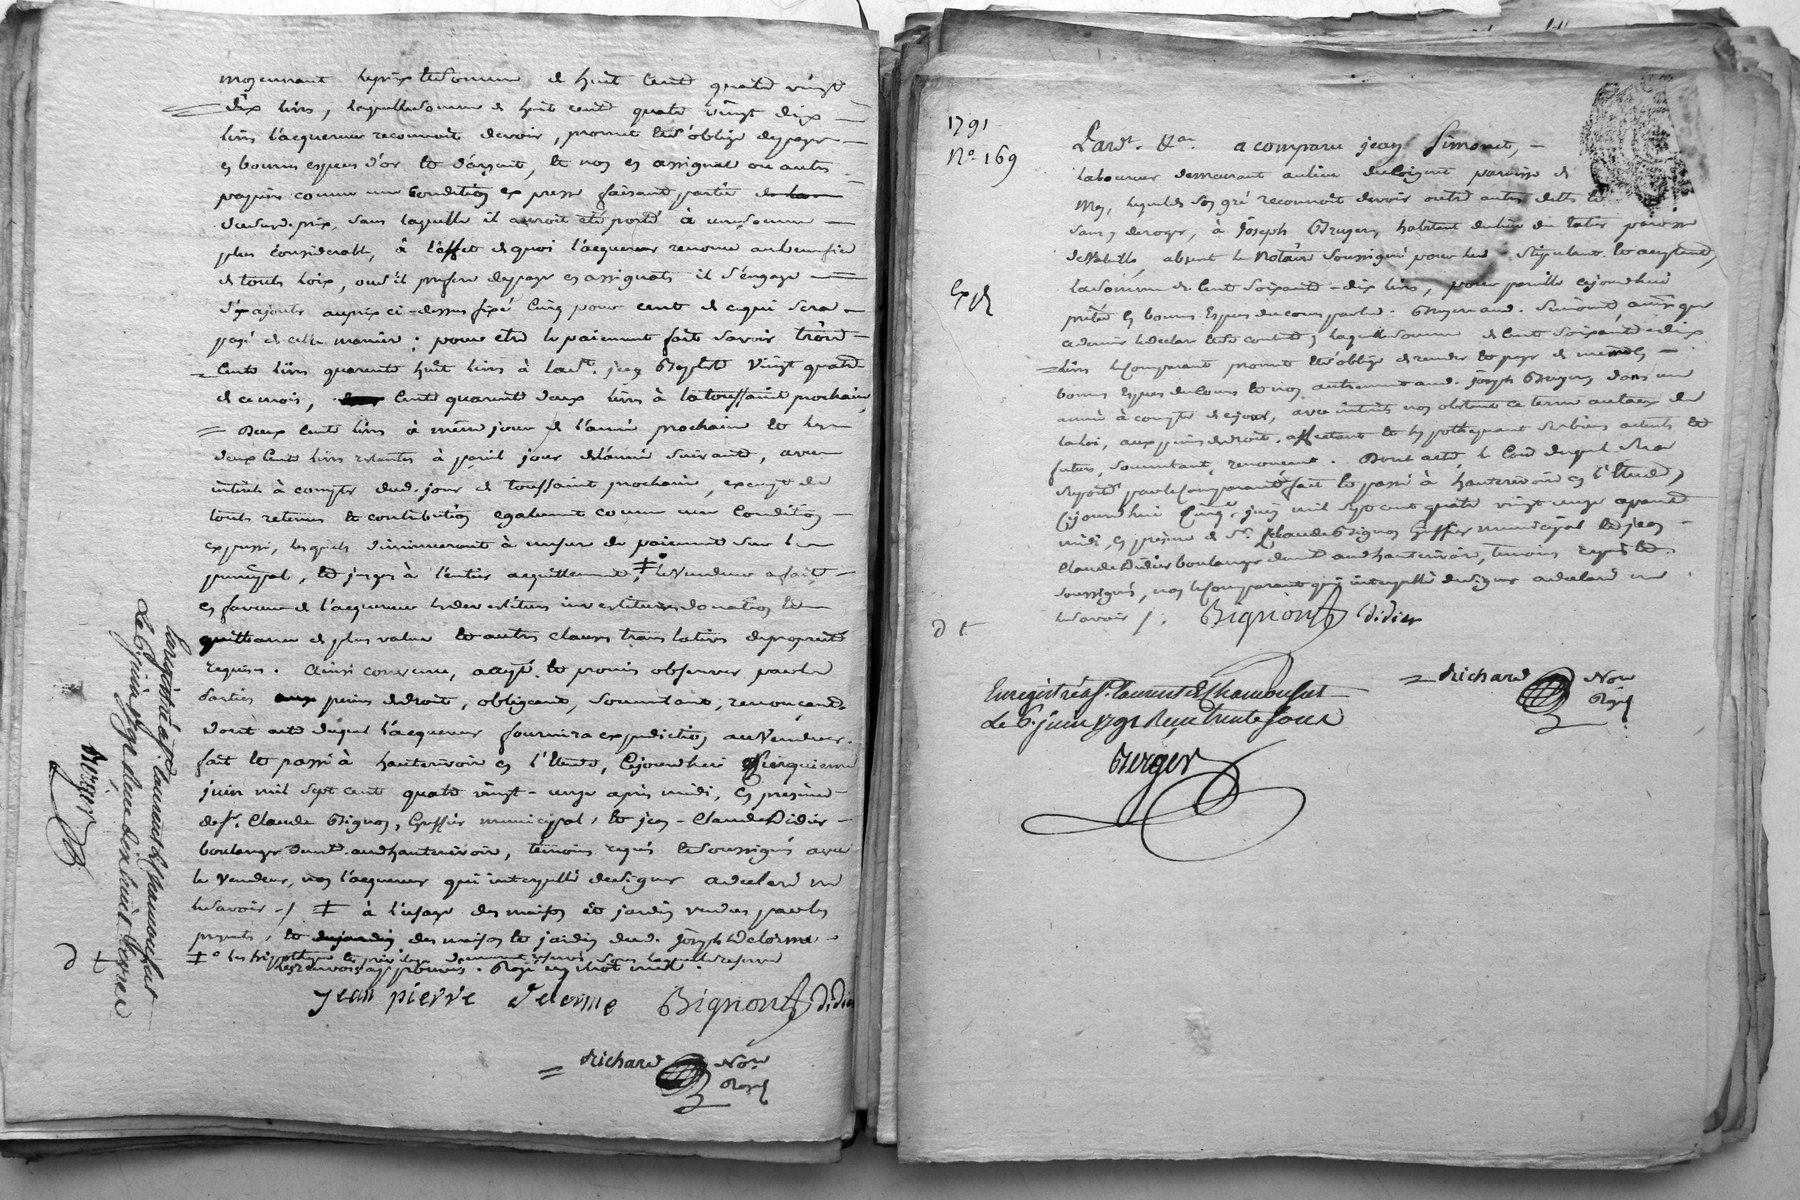 moyennant le prix et somme de huit cent quatre vingt
dix livres, laquelle somme de huit cent quatre vingt dix
livres l'acquereur reconnoit devoir, promet et s'oblige de payer
en bonnes especes d'or et d'argent, et non en assignat ou autre
papier comme une condition expresse faisant partie
dudud. prix, sans laquelle il auroit eté porté à une somme
plus considerable, à l'effet de quoi l'acquereur renonce au benefice
de toute loix, ou s'il prefere de payer en assignats il s'engage
d'y ajouter au prix ci-dessus fixé cinq pour cent de ce qui sera
payé de cette maniere; pour etre le paiement fait savoir trois
cents livres quarante huit livres à la st. jean Baptiste vingt quatre
de ce mois, cent quarante deux livres à la toussaint prochaine
Deux cents livres à même jour de l'année prochaine et les
deux cents livres restantes à pareil jour de l'année suivante, avec
interets à compter dud. jour de toussaint prochain, exempts de
toutes retenues et contribution egalement comme une condition
expresse, lesquels diminueront à mesure de paiement sur le
principal, et jusques à l'entier acquittement; ‡° le vendeur a fait
en faveur de l'acquereur les devestiture investiture donation et
quittance de plus value et autres clauses translatives de proprieté
requises. Ainsi convenu, accepté et promis observer par les
parties aux peines de droit, obligeant, soumettant, renonçant.
Dont acte duquel l'acquereur fournira expedition au vendeur.
fait et passé à hauterivoire en l'Etude, cejourdhui
juin mil sept cent quatre vingt-onze après midi, en presence
de sr. Claude Bignon, Greffier municipal, et jean-Claude Didier
boulanger demt. aud hauterivoire, temoins requis et soussignés avec
le vendeur, non l'acquereur qui interpellé de signer a declaré ne
le savoir ./. ‡ à l'usage des maison et jardin vendus par les
presents, et des maison et jardin dud. joseph Delorme
‡° les hypotheque et privilege demeurent reservés sans laquelle reserve
les renvois approuvés. Rayé un mot nul.
jean pierre delorme Bignon Gf didier
Richard Nore
Royal
Enregistré à st. laurent de Chamousset
Le 6 juin 1791 Reçu
Berger
d t
1791
No. 169
Expé
Pardt. &a. a comparu jean Simonet,
laboureur demeurant au lieu paroisse de
Mey, lequel de son gré reconnoit devoir outre autre dette et
sans y deroger, à Joseph Bruyere habitant du lieu du paroisse
de absent le Notaire soussigné pour lui stipulant et acceptant,
la somme de cent soixante-dix livres, pour pareille cejourdhui
preté en bonnes especes de cours par led. Bruyere aud. Simonet, ainsi que
ce dernier le declare et content, laquelle somme de cent soixante dix
livres le comparant promet et s'oblige de rendre et payer de mêmes
bonnes especes de cours et non autrement aud. joseph Bruyere dans une
année à compter de ce jour, avec interets non obstant ce terme au taux de
la loi, aux peines de droit, affectant et hypothequant ses biens presents et
futurs, soumettant, renonçant. Dont acte, le Coût duquel sera
supporté par le Comparant, fait et passé à hauterivoire en l'Etude,
Cejourdhui cinq juin mil sept cent quatre vingt onze après
midi, en presence de Sr. Claude Bignon Greffier municipal et jean
Claude Didier boulanger demt aud hauterivoire, temoins requis et
soussignés, non le Comparant qui interpellé de signer a declaré ne
le savoir ./. Bignon Gf didier
d t
Richard Nore
Royal
Enregistré à st. laurent de Chamousset
Le 6. juin 1791 Reçu trente sous
Berger